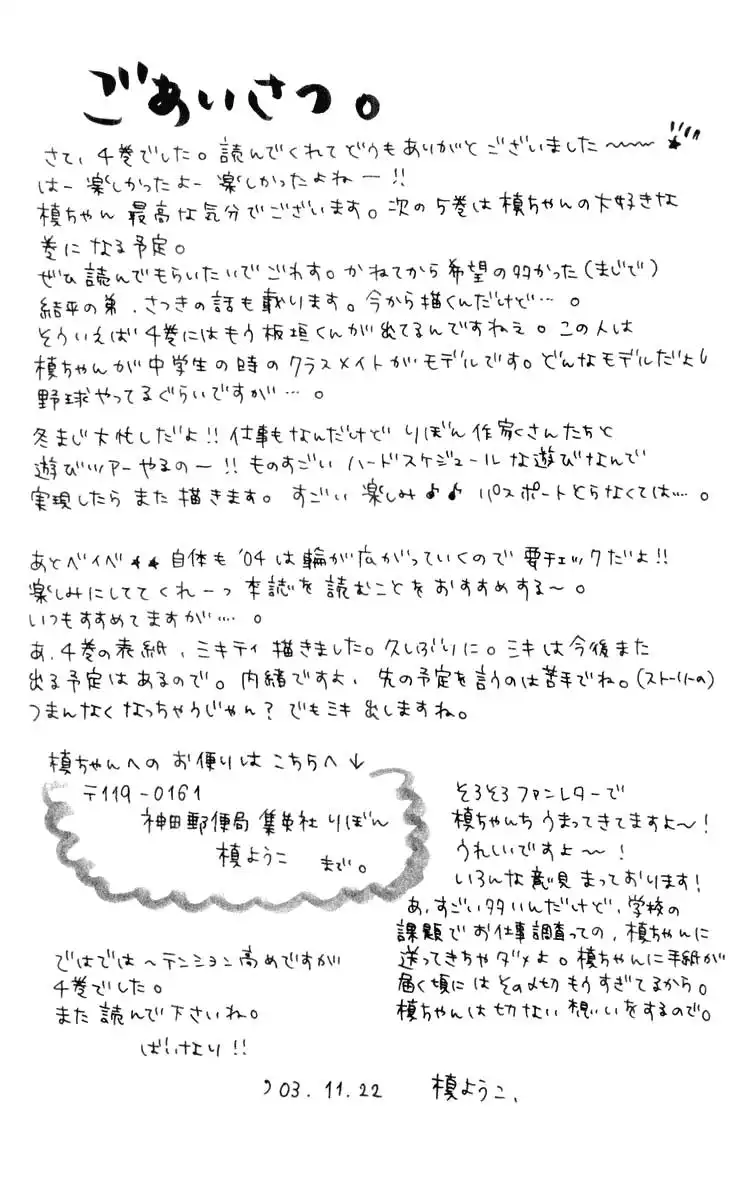 ごあいさつ。
さて、4巻でした。読んでくれてどうもありがとございました〜〜
はー楽しかったよー楽しかったよねー!!
槙ちゃん最高な気分でございます。次の5巻は槙ちゃんの大好きな
巻になる予定。
ぜひ読んでもらいたいでごわす。かねてから希望の多かった(まじで)
結平の弟、さつきの話も載ります。今から描くんだけど…。
そういえば4巻にはもう板垣くんが出てるんですねえ。この人は
槙ちゃんが中学生の時のクラスメイトがモデルです。どんなモデルだよ!
野球やってるぐらいですが…。
冬まじ大忙しだよ!!仕事もなんだけどりぼん作家さんたちと
遊びツアーやるの〜!!ものすごいハードスケジュールな遊びなんで
実現したらまた描きます。すごい楽しみ♪♪パスポートとらなくては…。
あとベイベ★★自体も'04は輪が広がっていくので要チェックだよ!!
楽しみにしててくれーっ本誌を読むことをおすすめする〜。
いつもすすめてますが…。
あ、4巻の表紙、ミキティ描きました。久しぶりに。ミキは今後また
出る予定はあるので。内緒ですよ、先の予定を言うのは苦手でね。(ストーリーの)
つまんなくなっちゃうじゃん?でもミキ出しますね。
槙ちゃんへのお便りはこちらへ↓
〒119-0161
神田郵便局 集英社りぼん
槙ようこ まで。
そろそろファンレターで
槙ちゃんちうまってきてますよ〜!
うれしいですよ〜!
いろんな意見まっております!
あ、すごい多いんだけど、学校の
課題でお仕事調査っての、槙ちゃんに
送ってきちゃダメよ。槙ちゃんに手紙が
届く頃にはその〆切もうすぎてるから。
槙ちゃんは切ない想いをするので。
ではでは〜テンション高めですが
4巻でした。
また読んで下さいね。
ばいなり!!
'03.11.22 槙ようこ、